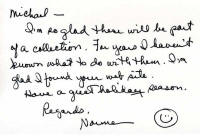 Michael –
I'm so glad these will be part
of a collection. For years I haven't
known what to do with them. I'm
glad I found your web site.
Have a great holiday season.
Regards,
Norma